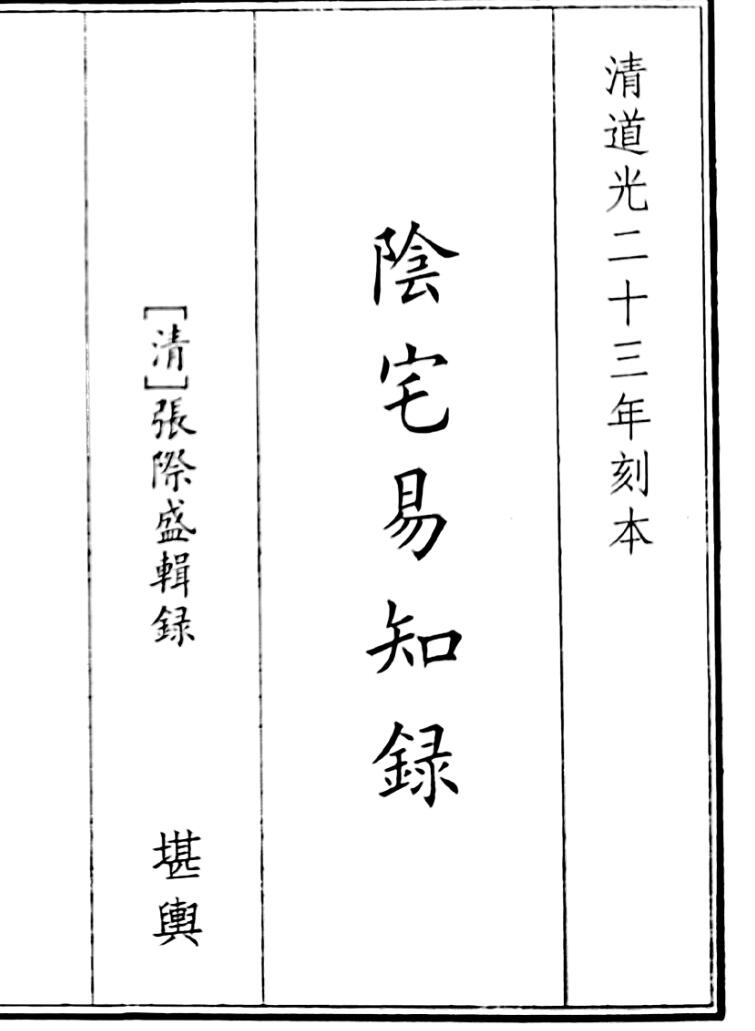 清道光二十三年刻本
陰宅易知録
[清]張際盛輯録
堪輿